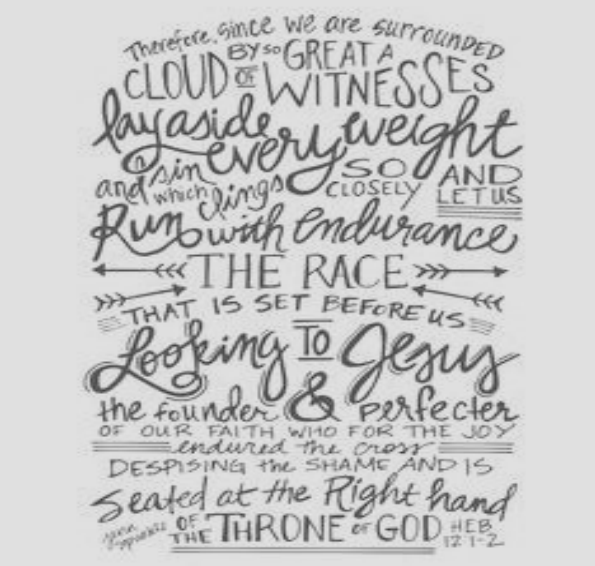 Therefore, since we are surrounded
BY so GREAT A
CLOUD OF WITNESSES
lay aside
every weight
and sin which clings SO CLOSELY AND LET US
Run with endurance
THE RACE
THAT IS SET BEFORE US
Looking TO Jesus
the founder & perfecter
OF OUR FAITH WHO FOR THE JOY
endured the cross
DESPISING the SHAME AND IS
Seated at the Right hand
OF THE THRONE OF GOD HEB 12:1-2